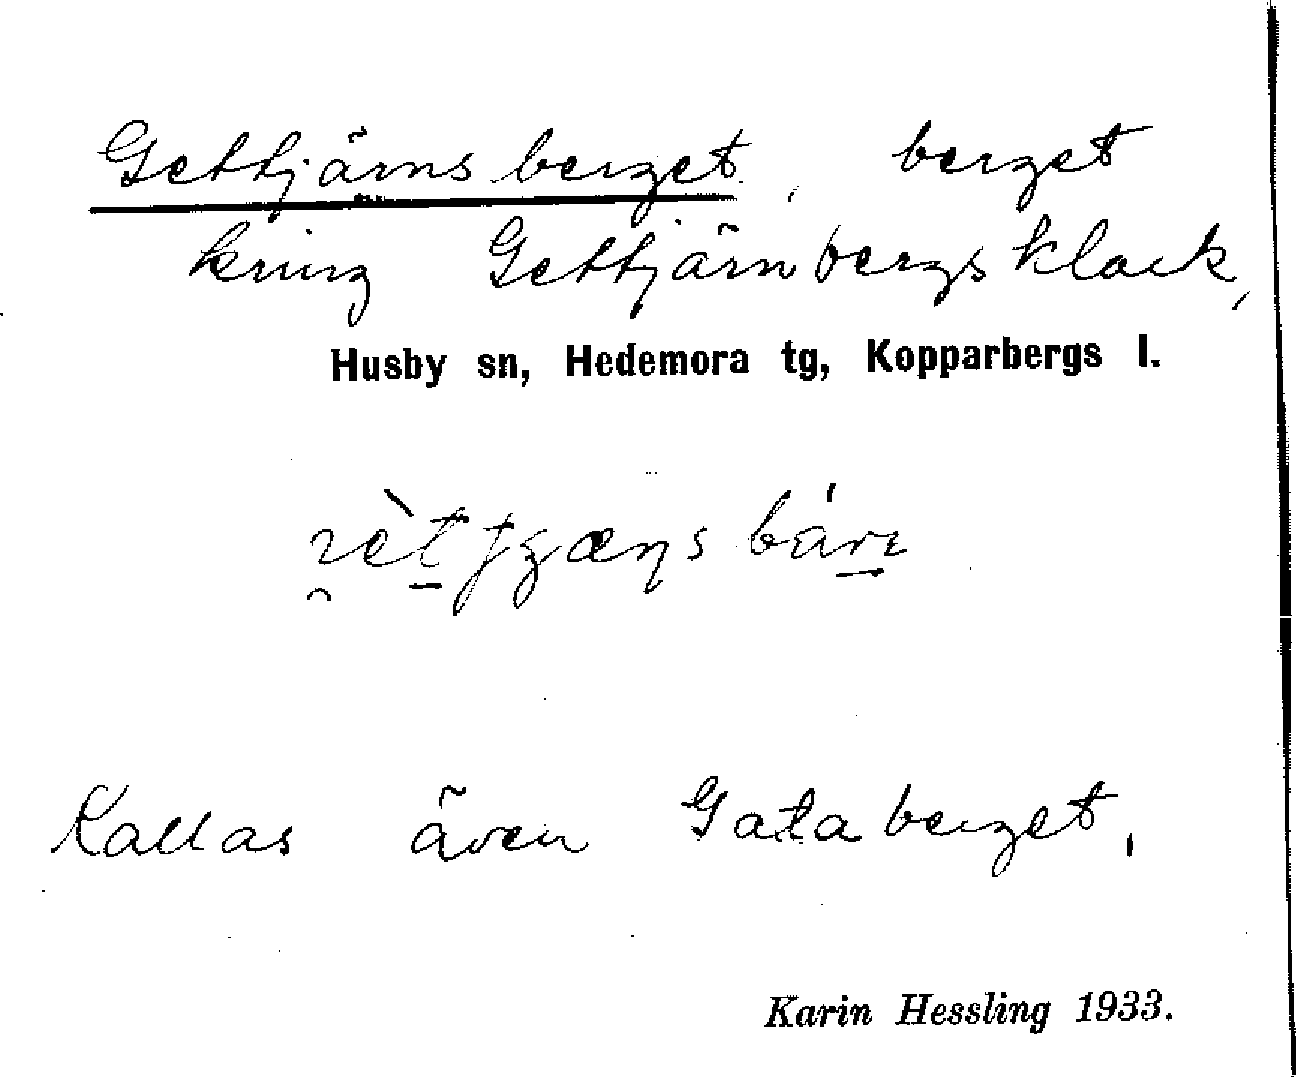 Gettjärnsberget, berget
kring Gettjärnbergsklack,
Husby sn, Hedemora tg, Kopparbergs l.
Kallas även Gataberget,
Karin Hessling 1933.